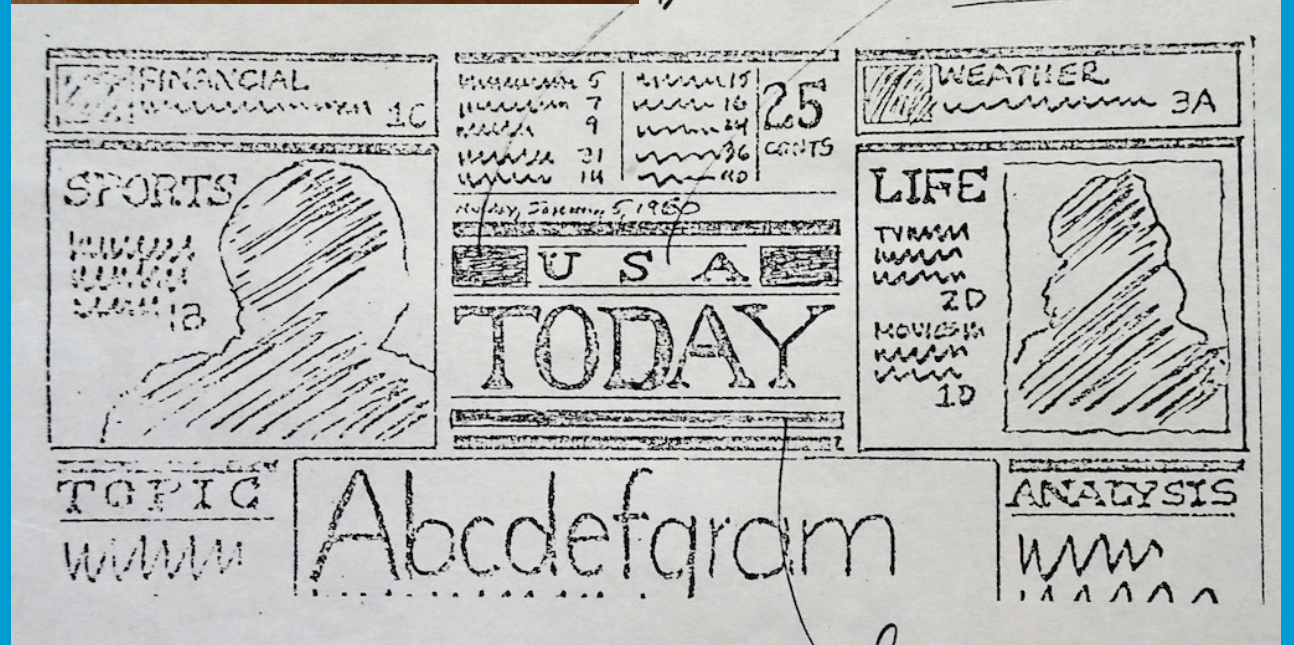 FINANCIAL
1C
5
7
9
21
14
15
16
24
36
40
25
CENTS
WEATHER
3A
SPORTS
1B
January 5, 1980
USA
TODAY
LIFE
2D
MOVIES
1D
TOPIC
Abcdefgram
ANALYSIS